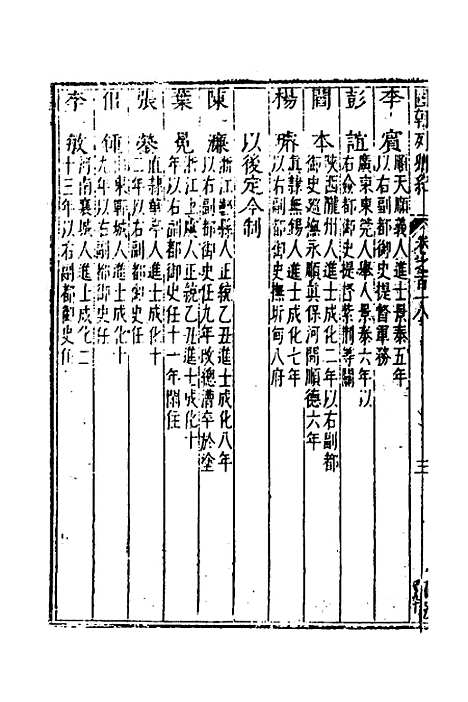 李賓 順天順義人進士景泰五年
以右副都御史提督軍務
彭誼 廣東東莞人舉人景泰六年以
右僉都御史提督紫荊等關
閻本 陝西 人進士成化二年以右副都
御史巡撫永順真保河間順德六年
楊璿 直隸無錫人進士成化七年
右副都御史撫圻甸八府
以後定今制
陳濂 浙江 縣人正統乙丑進士成化八年
以右副都御史任九年改總漕卒於塗
葉冕 浙江上虞人正統乙丑進士成化十
年以右副都御史任十一年閑住
張鎣 直隸華亭人進士成化十
二年以右副都御史任
侶鍾 山東鄆城人進士成化十
九年以右副都御史任
李敏 河南襄城人進士成化二
十三年以右副都御史任
三